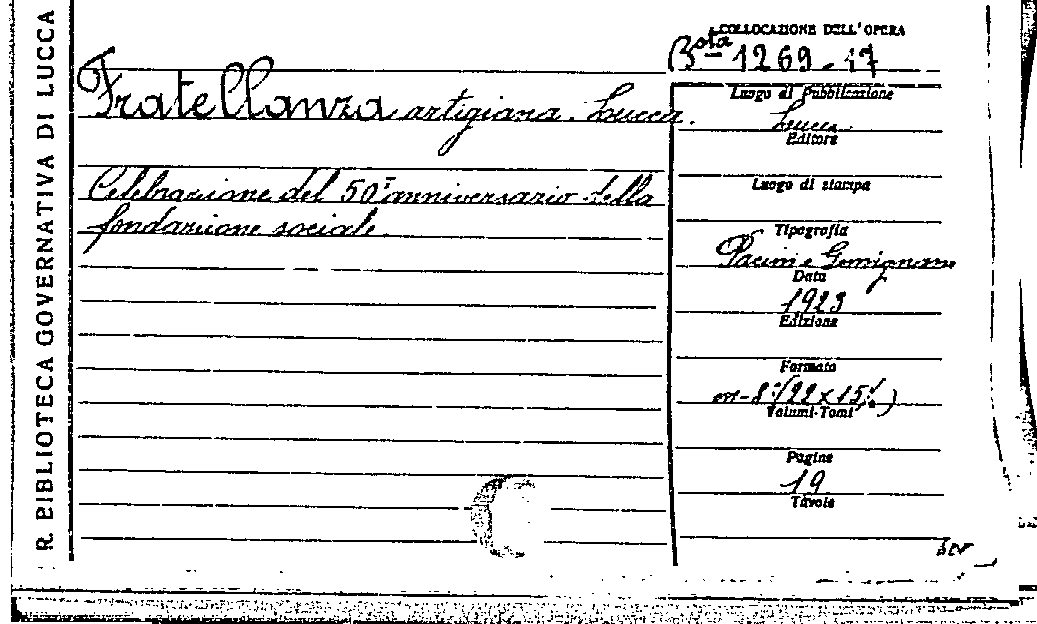 R. BIBLIOTECA GOVERNATIVA DI LUCCA
COLLOCAZIONE DELL'OPERA
Bta 1269-17
Fratellanza artigiana. Lucca.
Celebrazione del 50° anniversario della
fondazione sociale.
Luogo di Pubblicazione
Lucca
Editore
Luogo di stampa
Tipografia
Pacini e Gemignani
Data
1923
Edizione
Formato
in-8° (22 x 15½)
Volumi-Tomi
Pagine
19
Tavole